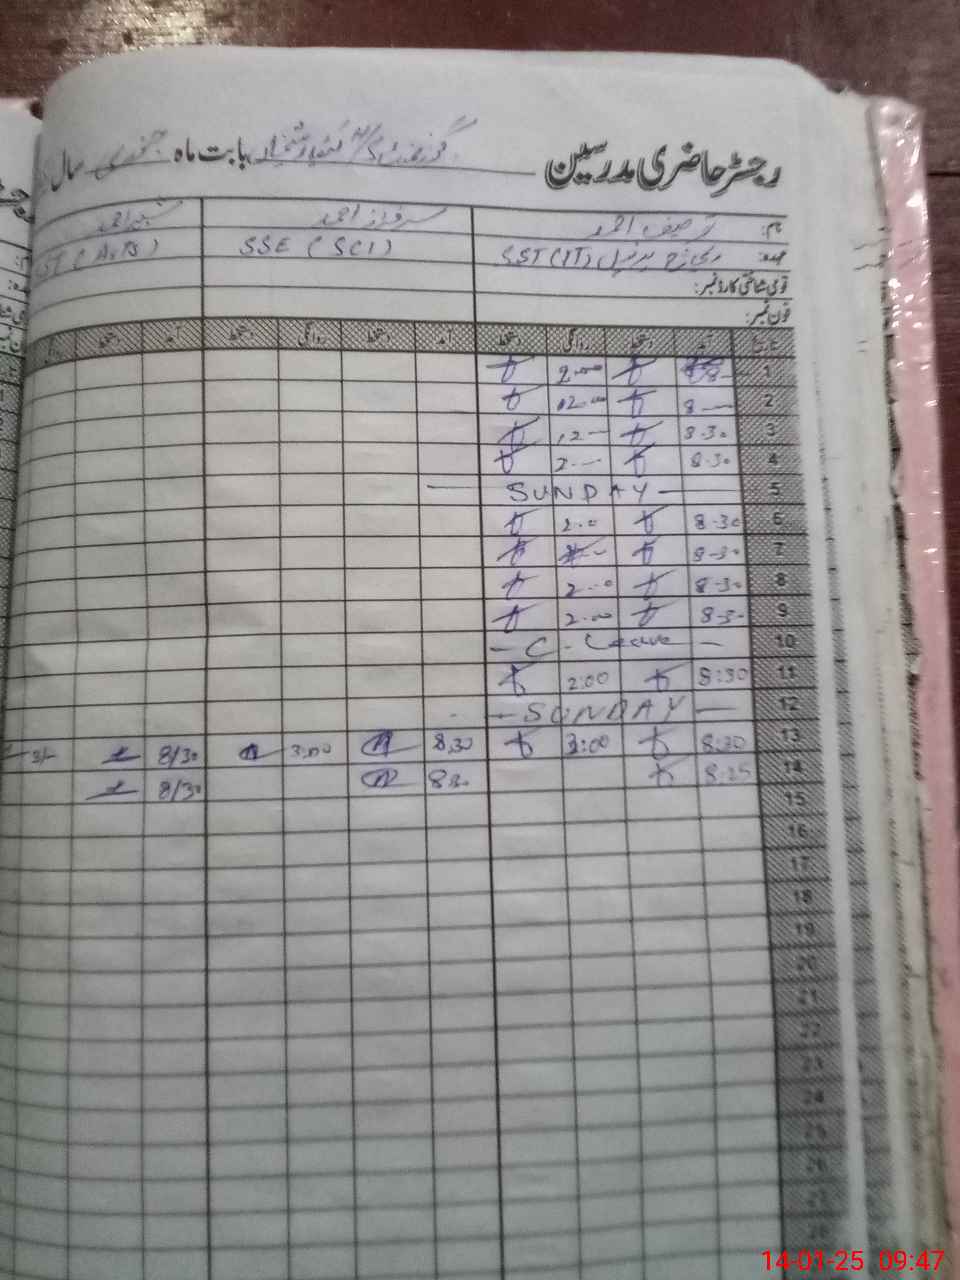 رجسٹر حاضری مدرسین بابت ماہ جنوری سال
نام: توصیف احمد سرفراز احمد شبیر احمد
عہدہ: SST (IT) انچارج پرنسپل SSE (SCI) (Arts)
قومی شناختی کارڈ نمبر:
فون نمبر:
تاریخ آمد دستخط روانگی دستخط آمد دستخط روانگی دستخط آمد دستخط
1 8 2:00
2 8 12:00
3 8-30 12
4 8-30 2
5 SUNDAY
6 8-30 2:0
7 8-30
8 8-30 2:00
9 8-30 2:00
10 C. Leave
11 8:30 2:00
12 SUNDAY
13 8:30 3:00 8.30 3:00 8/30 3/-
14 8:25 8/30
15
16
17
18
19
20
21
22
23
24
25
26
27
28
14-01-25 09:47